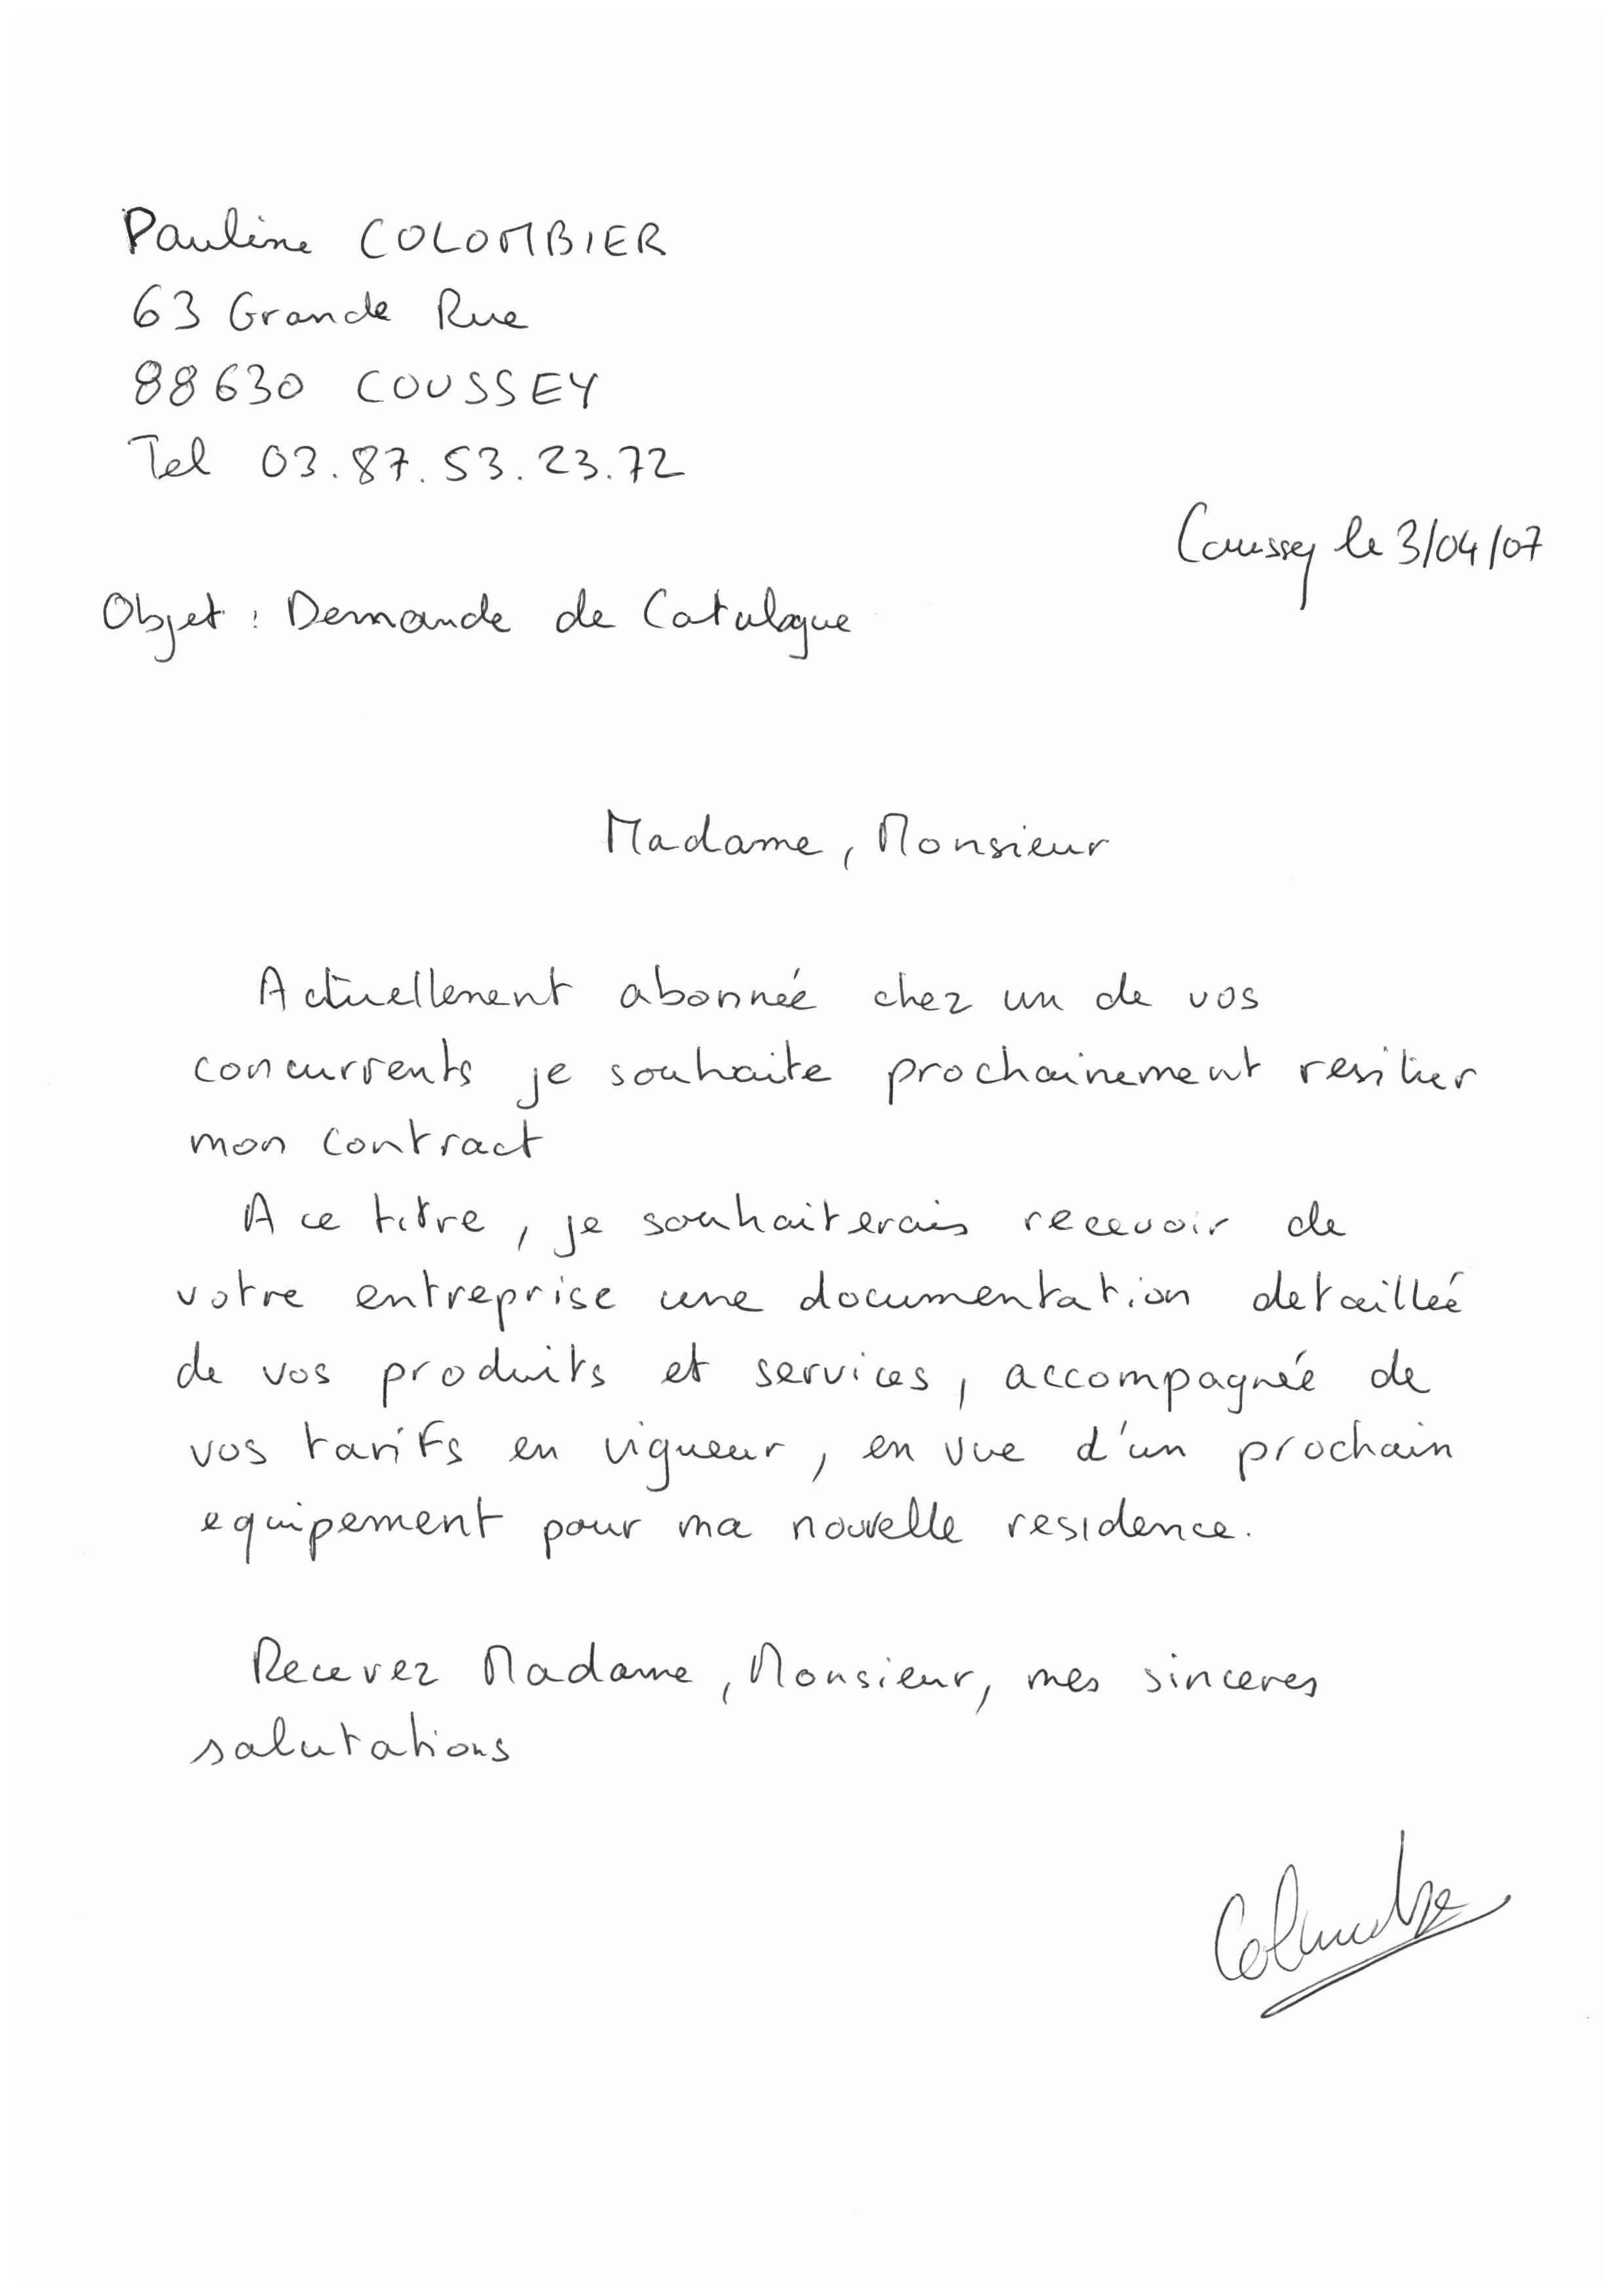 Pauline COLOMBIER
63 Grande Rue
88630 COUSSEY
Tel 03.87.53.23.72
Coussey le 3/04/07
Objet : Demande de Catalogue
Madame, Monsieur
Actuellement abonnée chez un de vos
concurrents je souhaite prochainement resilier
mon contract
A ce titre, je souhaiterais recevoir de
votre entreprise une documentation detaillée
de vos produits et services, accompagnée de
vos tarifs en vigueur, en vue d'un prochain
equipement pour ma nouvelle residence.
Recevez Madame, Monsieur, mes sinceres
salutations